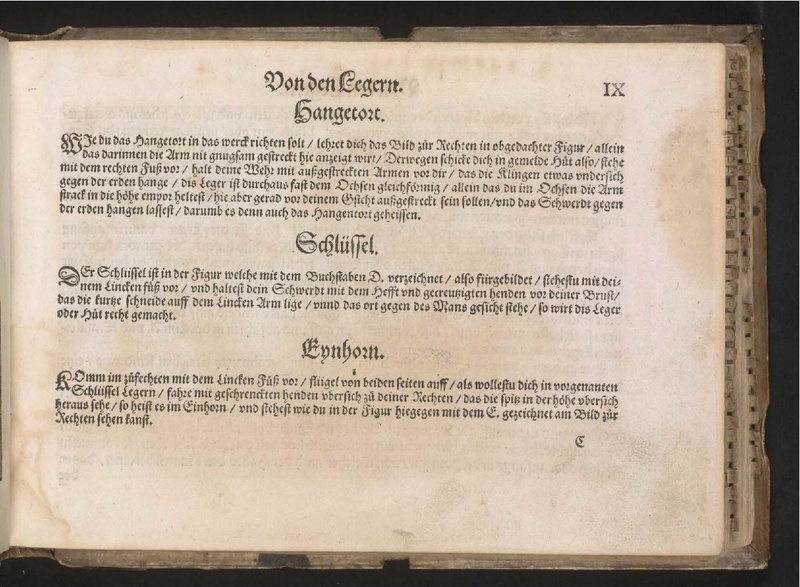 Von den Legern.
IX
Hangetort.
WIe du das Hangetort in das werck richten solt / lehret dich das Bild zůr Rechten in obgedachter Figur / allein
das darinnen die Arm nit gnugsam gestreckt hie anzeigt wirt / Derwegen schicke dich in gemelde Hůt also / stehe
mit dem rechten Fuß vor / halt deine Wehr mit außgestreckten Armen vor dir / das die Klingen etwas undersich
gegen der erden hange / dis Leger ist durchaus fast dem Ochsen gleichförmig / allein das du im Ochsen die Arm
strack in die höhe empor heltest / hie aber gerad vor deinem Gsicht außgestreckt sein sollen / und das Schwerdt gegen
der erden hangen lassest / darumb es denn auch das Hangentort geheissen.
Schlüssel.
DEr Schlüssel ist in der Figur welche mit dem Buchstaben D. verzeichnet / also fürgebildet / stehestu mit dei-
nem Lincken fůß vor / und haltest dein Schwerdt mit dem Hefft und gecreutzigten henden vor deiner Brust /
das die kurtze schneide auff dem Lincken Arm lige / unnd das ort gegen des Mans gesicht stehe / so wirt dis Leger
oder Hůt recht gemacht.
Eynhorn.
KOmm im zůfechten mit dem Lincken Fůß vor / flügel von beiden seiten auff / als woltestu dich in vorgenanten
Schlüssel Legern / fahre mit geschrenckten henden ubersich zů deiner Rechten / das die spitz in der höhe ubersich
heraus sehe / so heist es im Einhorn / und stehest wie du in der Figur hiegegen mit dem E. gezeichnet am Bild zůr
Rechten sehen kanst.
C